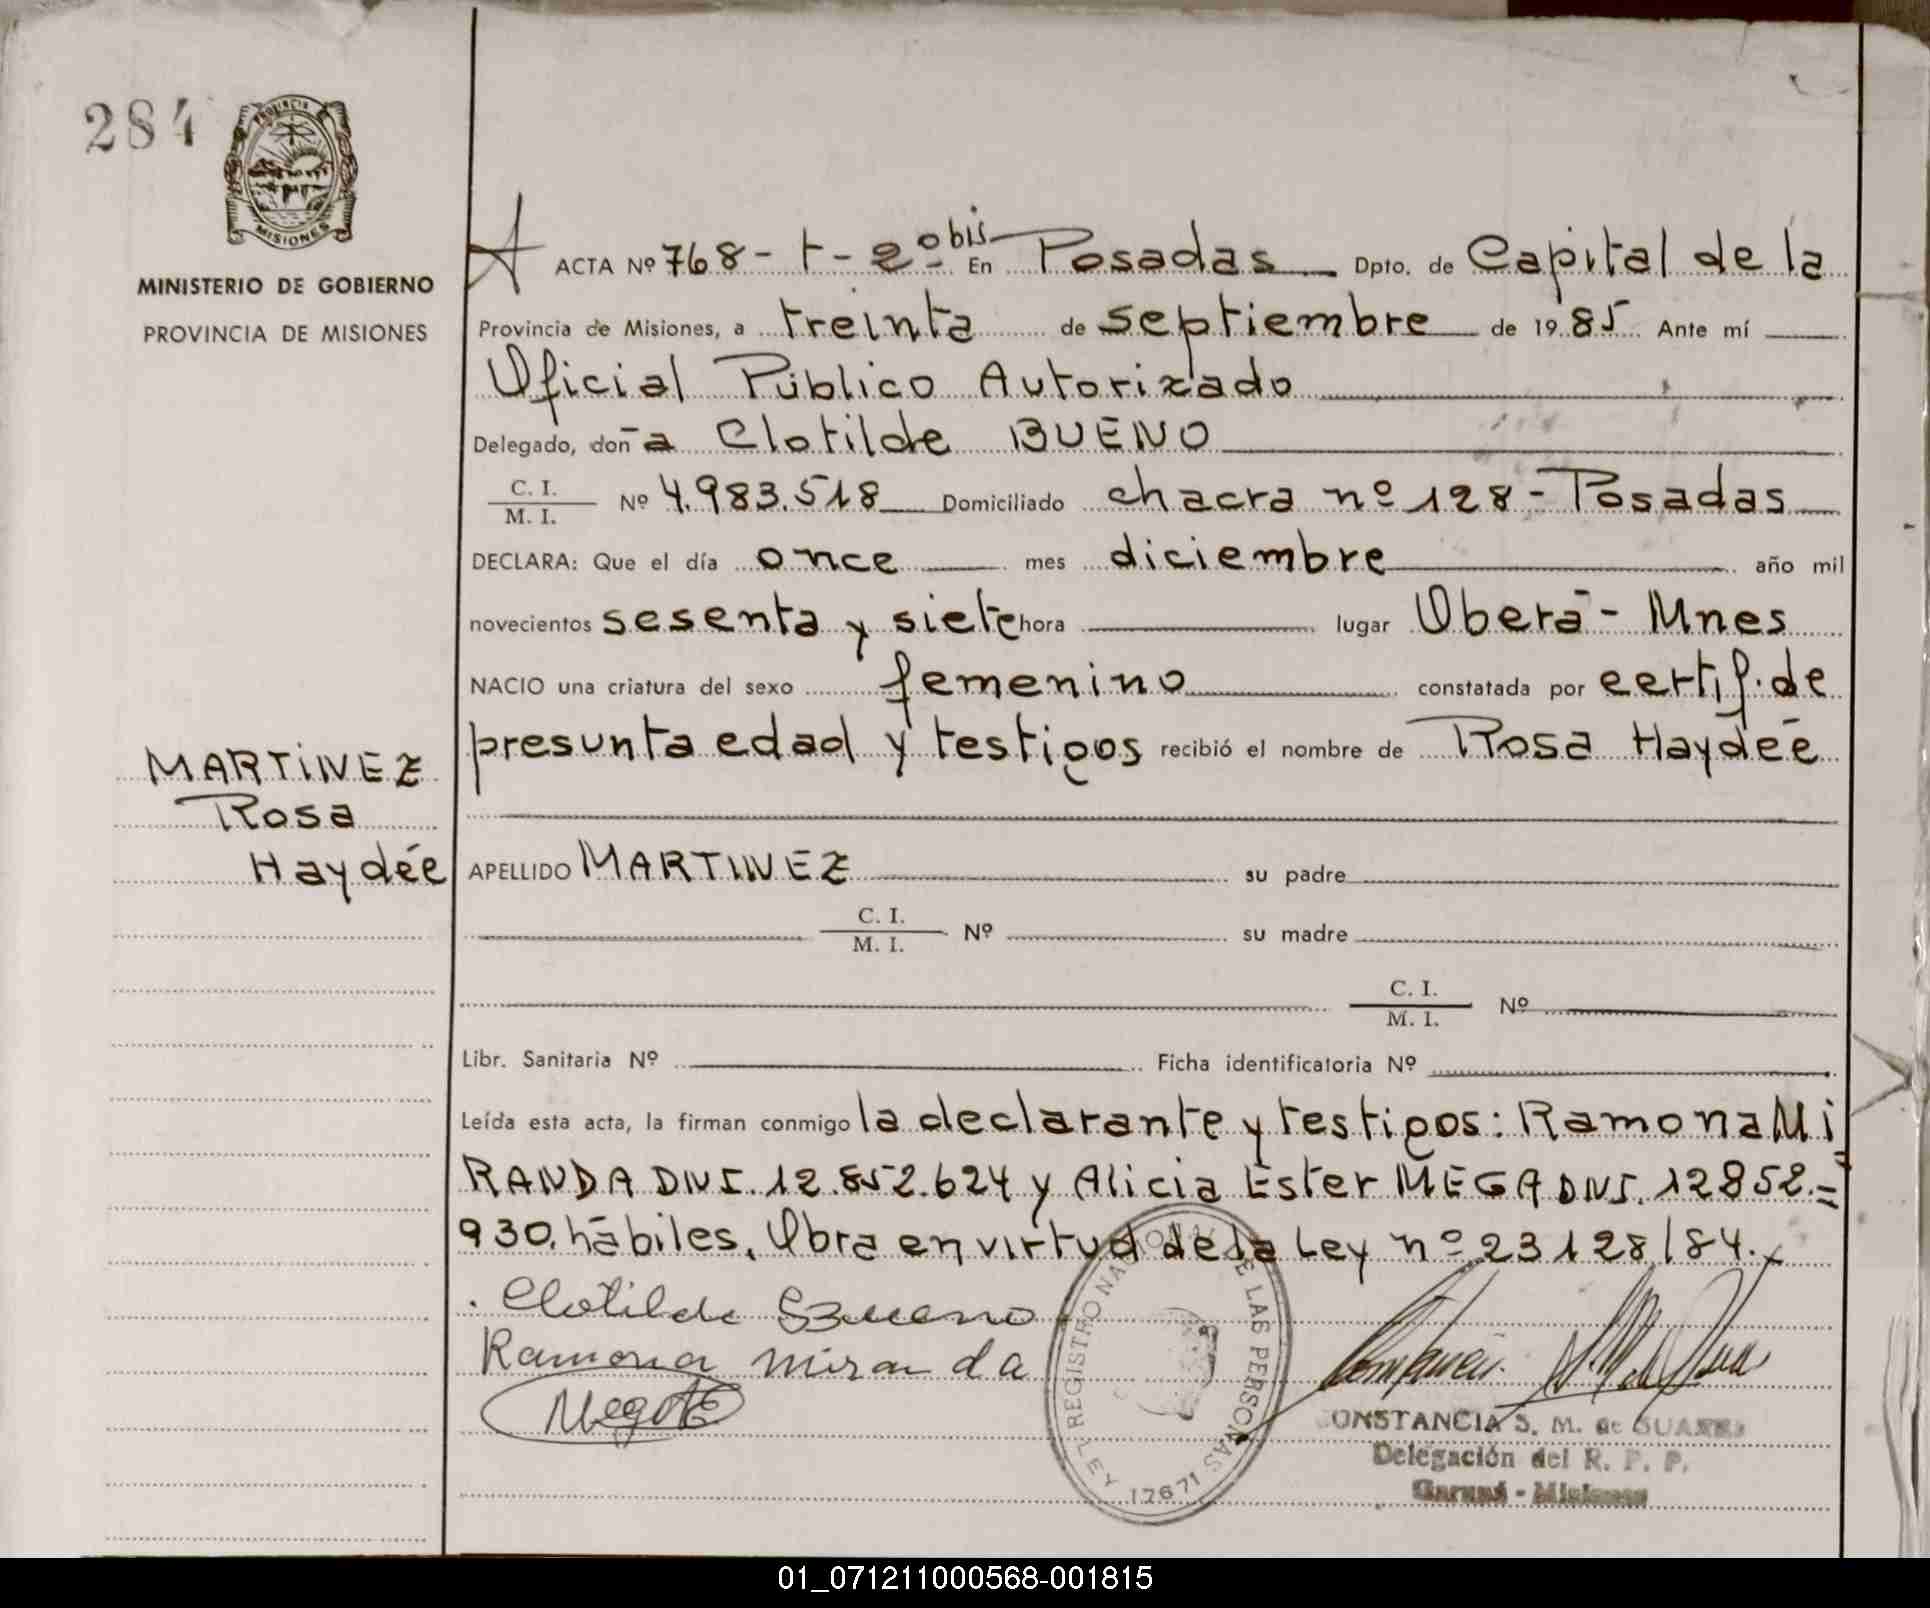 284
PROVINCIA
MISIONES
MINISTERIO DE GOBIERNO
PROVINCIA DE MISIONES
MARTINEZ
Rosa
Haydée
ACTA Nº 768 - t - 2º bis En Posadas Dpto. de Capital de la
Provincia de Misiones, a treinta de septiembre de 1985 Ante mí
Oficial Público Autorizado
Delegado, doña Clotilde BUENO
C. I.
M. I. Nº 4.983.518 Domiciliado chacra nº 128 - Posadas
DECLARA: Que el día once mes diciembre año mil
novecientos sesenta y siete hora lugar Oberá - Mnes
NACIO una criatura del sexo femenino constatada por certif. de
presunta edad y testigos recibió el nombre de Rosa Haydée
APELLIDO MARTINEZ su padre
C. I.
M. I. Nº su madre
C. I.
M. I. Nº
Libr. Sanitaria Nº Ficha identificatoria Nº
Leída esta acta, la firman conmigo la declarante y testigos: Ramona Mi
RANDA DNI. 12.852.624 y Alicia Ester MEGA DNI. 12852.=
930. hábiles. Obra en virtud de la Ley nº 23128/84.
Clotilde Bueno
Ramona miranda
REGISTRO NACIONAL DE LAS PERSONAS
LEY 17671
CONSTANCIA S. M. de SUAREZ
Delegación del R. P. P.
Garupá - Misiones
01_071211000568-001815